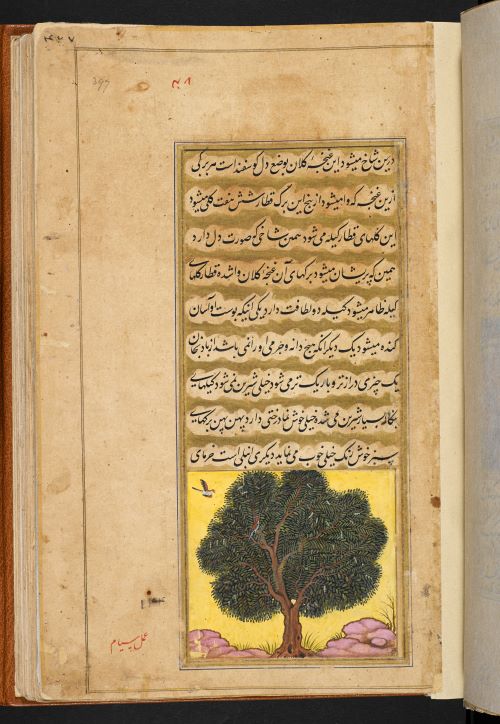 ۴۲۷
397
۴۸
درین شاخ میشود این غنچهٔ کلان بوضع دل کوسفند است هر برکی
ازین غنچه که وا میشود از بیخ این برگ قطار شش هفت کلی میشود
این کلهای قطار کیله می شود همین شاخی که صورت دل دارد
همین که پریشان میشود برکهای آن غنچهٔ کلان وا شده قطار کلهای
کیله ظاهر میشود کیله دو لطافت دارد یکی اینکه پوست او آسان
کنده میشود یک دیگر انکه هیچ دانه و جرمی او را نمی باشد از بادنجان
یک چیزی درازتر و باریک تر می شود خیلی شیرین نمی شود کیلهای
بنکاله بسیار شیرین می شده خیلی خوش نما درختی دارد پهن پهن برکهای
سبز خوش رنک خیلی خوب می نماید دیکری انبلی است خرمای
عمل پیام